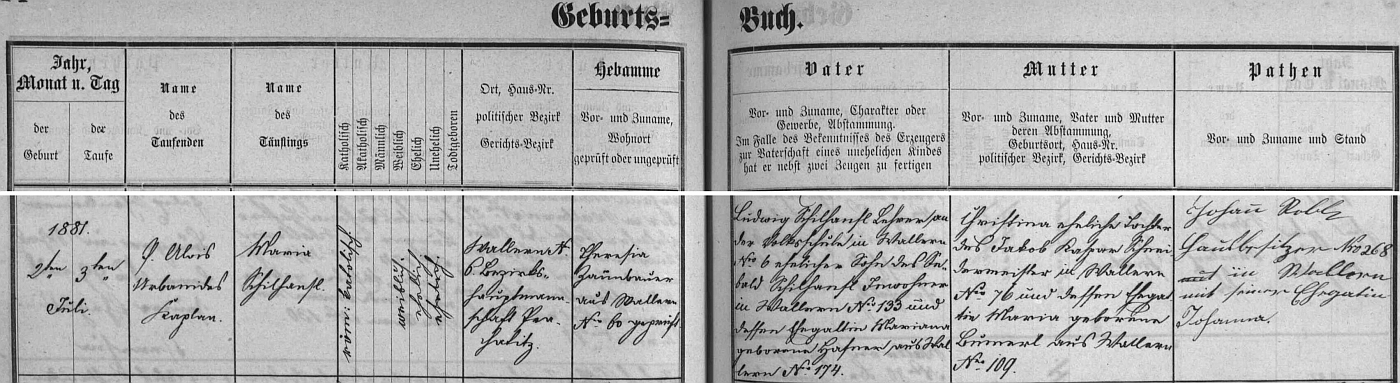 Geburts= Buch.
Jahr,
Monat u. Tag
der
Geburt
der
Taufe
Name
des
Taufenden
Name
des
Täuflings
Katholisch
Akatholisch
Männlich
Weiblich
Ehelich
Unehelich
Todtgeboren
Ort, Haus-Nr.
politischer Bezirk
Gerichts-Bezirk
Hebamme
Vor- und Zuname,
Wohnort
geprüft oder ungeprüft
Vater
Vor- und Zuname, Charakter oder
Gewerbe, Abstammung.
Im Falle des Bekenntnisses des Erzeugers
zur Vaterschaft eines unehelichen Kindes
hat er nebst zwei Zeugen zu fertigen
Mutter
Vor- und Zuname, Vater und Mutter
deren Abstammung,
Geburtsort, Haus-Nr.
politischer Bezirk, Gerichts-Bezirk
Pathen
Vor- und Zuname und Stand
1881.
2ten
Juli.
3ten
P. Alois
Urbanides
Kaplan.
Maria
Schilhansl.
röm. katolisch
weiblich.
ehelich
Wallern N
6 Bezirks-
hauptmann-
schaft Pra-
chatitz.
Theresia
aus Wallern
No 60 geprüft.
Ludwig Schilhansl Lehrer an
der Volksschule in Wallern
No 6 ehelicher Sohn des Se-
bald Schilhansl Inwohner
in Wallern No 133 und
dessen Ehegattin Mariana
geborene Hafner aus Wal
lern No 174.
Christina eheliche Tochter
des Jakob Kaspar Schnei
dermeister in Wallern
No 76 und dessen Ehega
tin Maria geborene
aus Wallern
No 109.
Johann
Hausbesitzer No 268
in Wallern
mit seiner Ehegatin
Johanna.